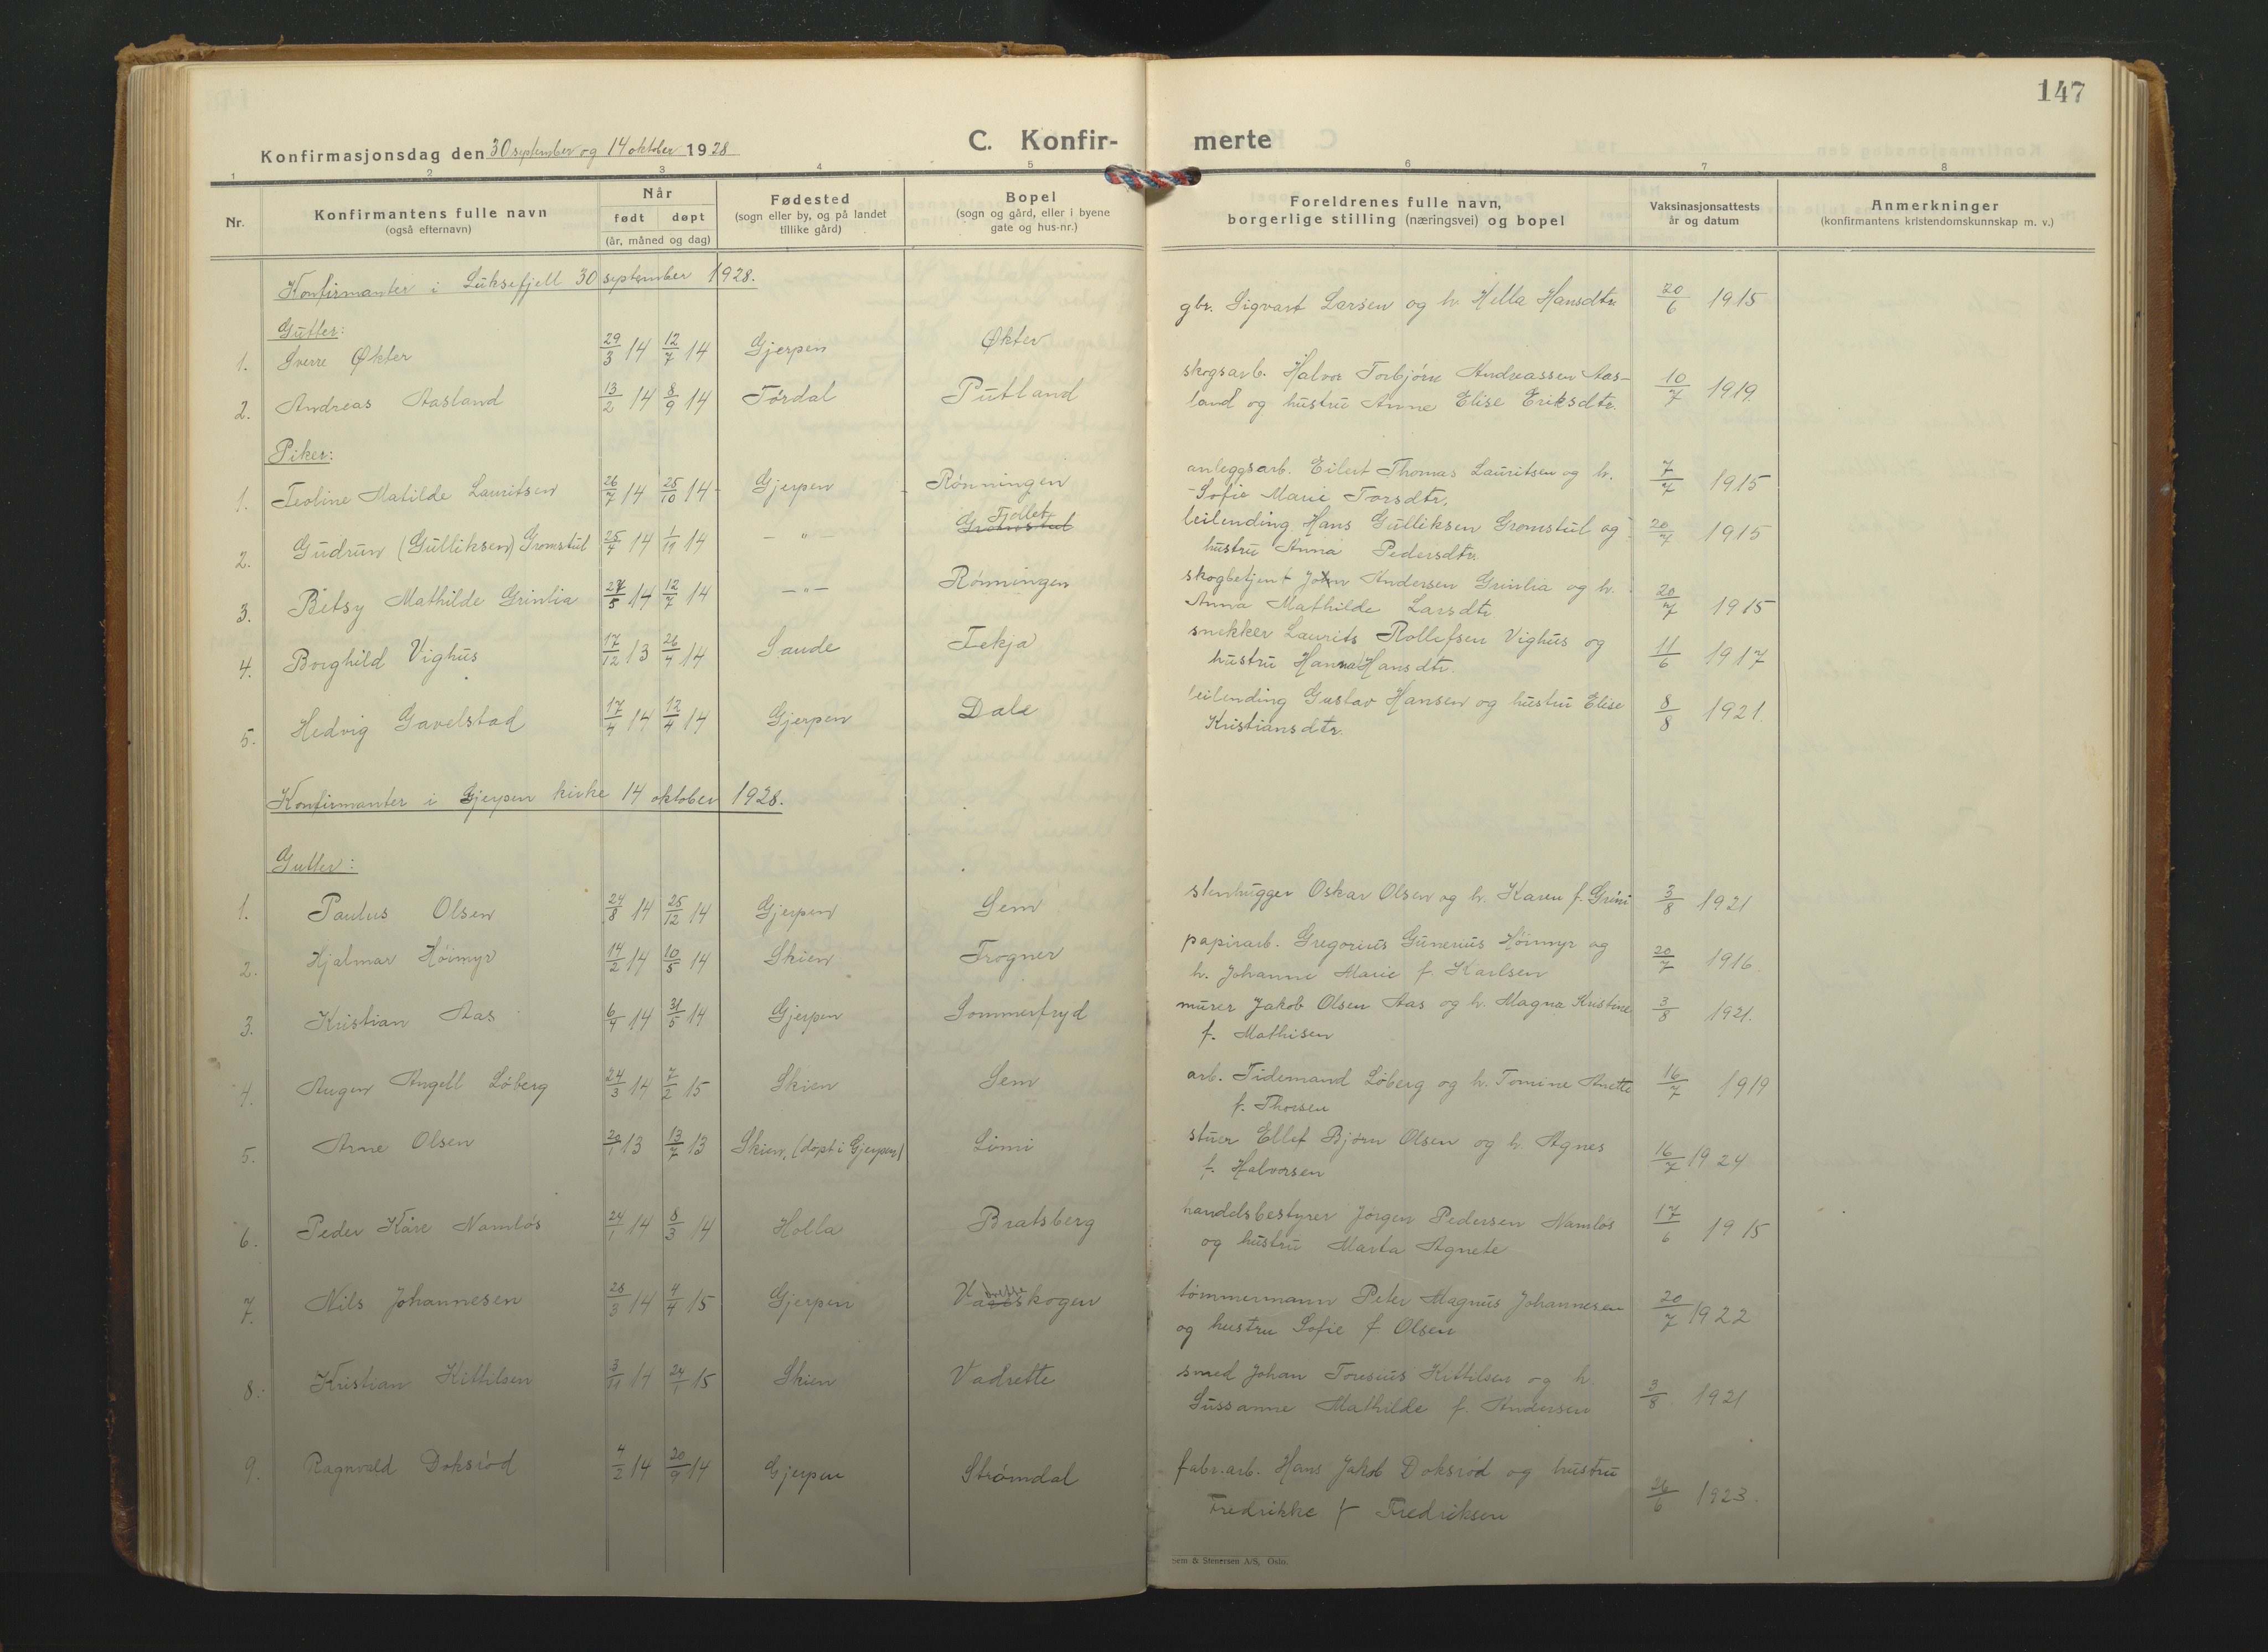 147
C. Konfir- merte
Konfirmasjonsdag den 30 september og 14 oktober 1928
1 2 3 4 5 6 7 8
Nr.
Konfirmantens fulle navn
(også efternavn)
Når
født døpt
(år, måned og dag)
Fødested
(sogn eller by, og på landet
tillike gård)
Bopel
(sogn og gård, eller i byene
gate og hus-nr.)
Foreldrenes fulle navn,
borgerlige stilling (næringsvei) og bopel
Vaksinasjonsattests
år og datum
Anmerkninger
(konfirmantens kristendomskunnskap m. v.)
Konfirmanter i Luksefjell 30 september 1928.
Gutter:
1. Sverre Økter 29/3 14 12/7 14 Gjerpen Økter gbr. Sigvart Larsen og h. Hella Hansdtr 20/6 1915
2. Andreas Aasland 13/2 14 8/9 14 Tørdal Putland skogsarb. Halvor Torbjørn Andreassen Aas-
land og hustru Anne Elise Eriksdtr. 10/7 1919.
Piker:
1. Teoline Matilde Lauritsen 26/7 14 25/10 14 Gjerpen Rønningen anleggsarb. Eilert Thomas Lauritsen og h.
Sofie Marie Torsdtr. 7/7 1915
2. Gudrun (Gulliksen) Gromstul 25/7 14 1/11 14 – " – Gromstul Fjellet leilending Hans Gulliksen Gromstul og
hustru Anna Pedersdtr. 20/7 1915
3. Betsy Mathilde Grinlia 27/5 14 12/7 14 – " – Rønningen skogbetjent John Andersen Grinlia og h.
Anna Mathilde Larsdtr 20/7 1915
4. Borghild Vighus 17/12 13 26/4 14 Saude Tekja snekker Laurits Rollefsen Vighus og
hustru Hanna Hansdtr. 11/6 1917
5. Hedvig Gavelstad 17/4 14 12/4 14 Gjerpen Dale leilending Gustav Hansen og hustru Elise
Kristiansdtr. 8/8 1921.
Konfirmanter i Gjerpen kirke 14 oktober 1928.
Gutter:
1. Paulus Olsen 24/8 14 25/12 14 Gjerpen Sem stenhugger Oskar Olsen og h. Karen f. Grini 3/8 1921
2. Hjalmar Høimyr 14/2 14 10/5 14 Skien Frogner papirarb. Gregorius Gunerius Høimyr og
h. Johanne Marie f. Karlsen 20/7 1916.
3. Kristian Aas 6/4 14 31/5 14 Gjerpen Sommerfryd murer Jakob Olsen Aas og h. Magna Kristine
f. Mathisen 3/8 1921.
4. Augen Angell Løberg 24/3 14 7/2 15 Skien Sem arb. Tidemand Løberg og h. Tomine Anette
f. Thorsen 16/7 1919
5. Arne Olsen 20/1 13 13/7 13 Skien, (døpt i Gjerpen) Limi stuer Ellef Bjørn Olsen og h. Agnes
f. Halvorsen 16/7 1924
6. Peder Kåre Namløs 24/1 14 8/3 14 Holla Bratsberg handelsbestyrer Jørgen Pedersen Namløs
og hustru Marta Agnete 17/6 1915
7. Nils Johannesen 28/3 14 4/4 15 Gjerpen Vadretteskogen tømmermann Peter Magnus Johannesen
og hustru Sofie f Olsen 20/7 1922
8. Kristian Kittilsen 3/11 14 24/1 15 Skien Vadrette smed Johan Toresius Kittilsen og h.
Sussanne Mathilde f. Andersen 3/8 1921
9. Ragnvald Doksrød 4/2 14 20/9 14 Gjerpen Strømdal fabr.arb. Hans Jakob Doksrød og hustru
Fredrikke f Fredriksen 26/6 1923.
Sem & Stenersen A/S, Oslo.